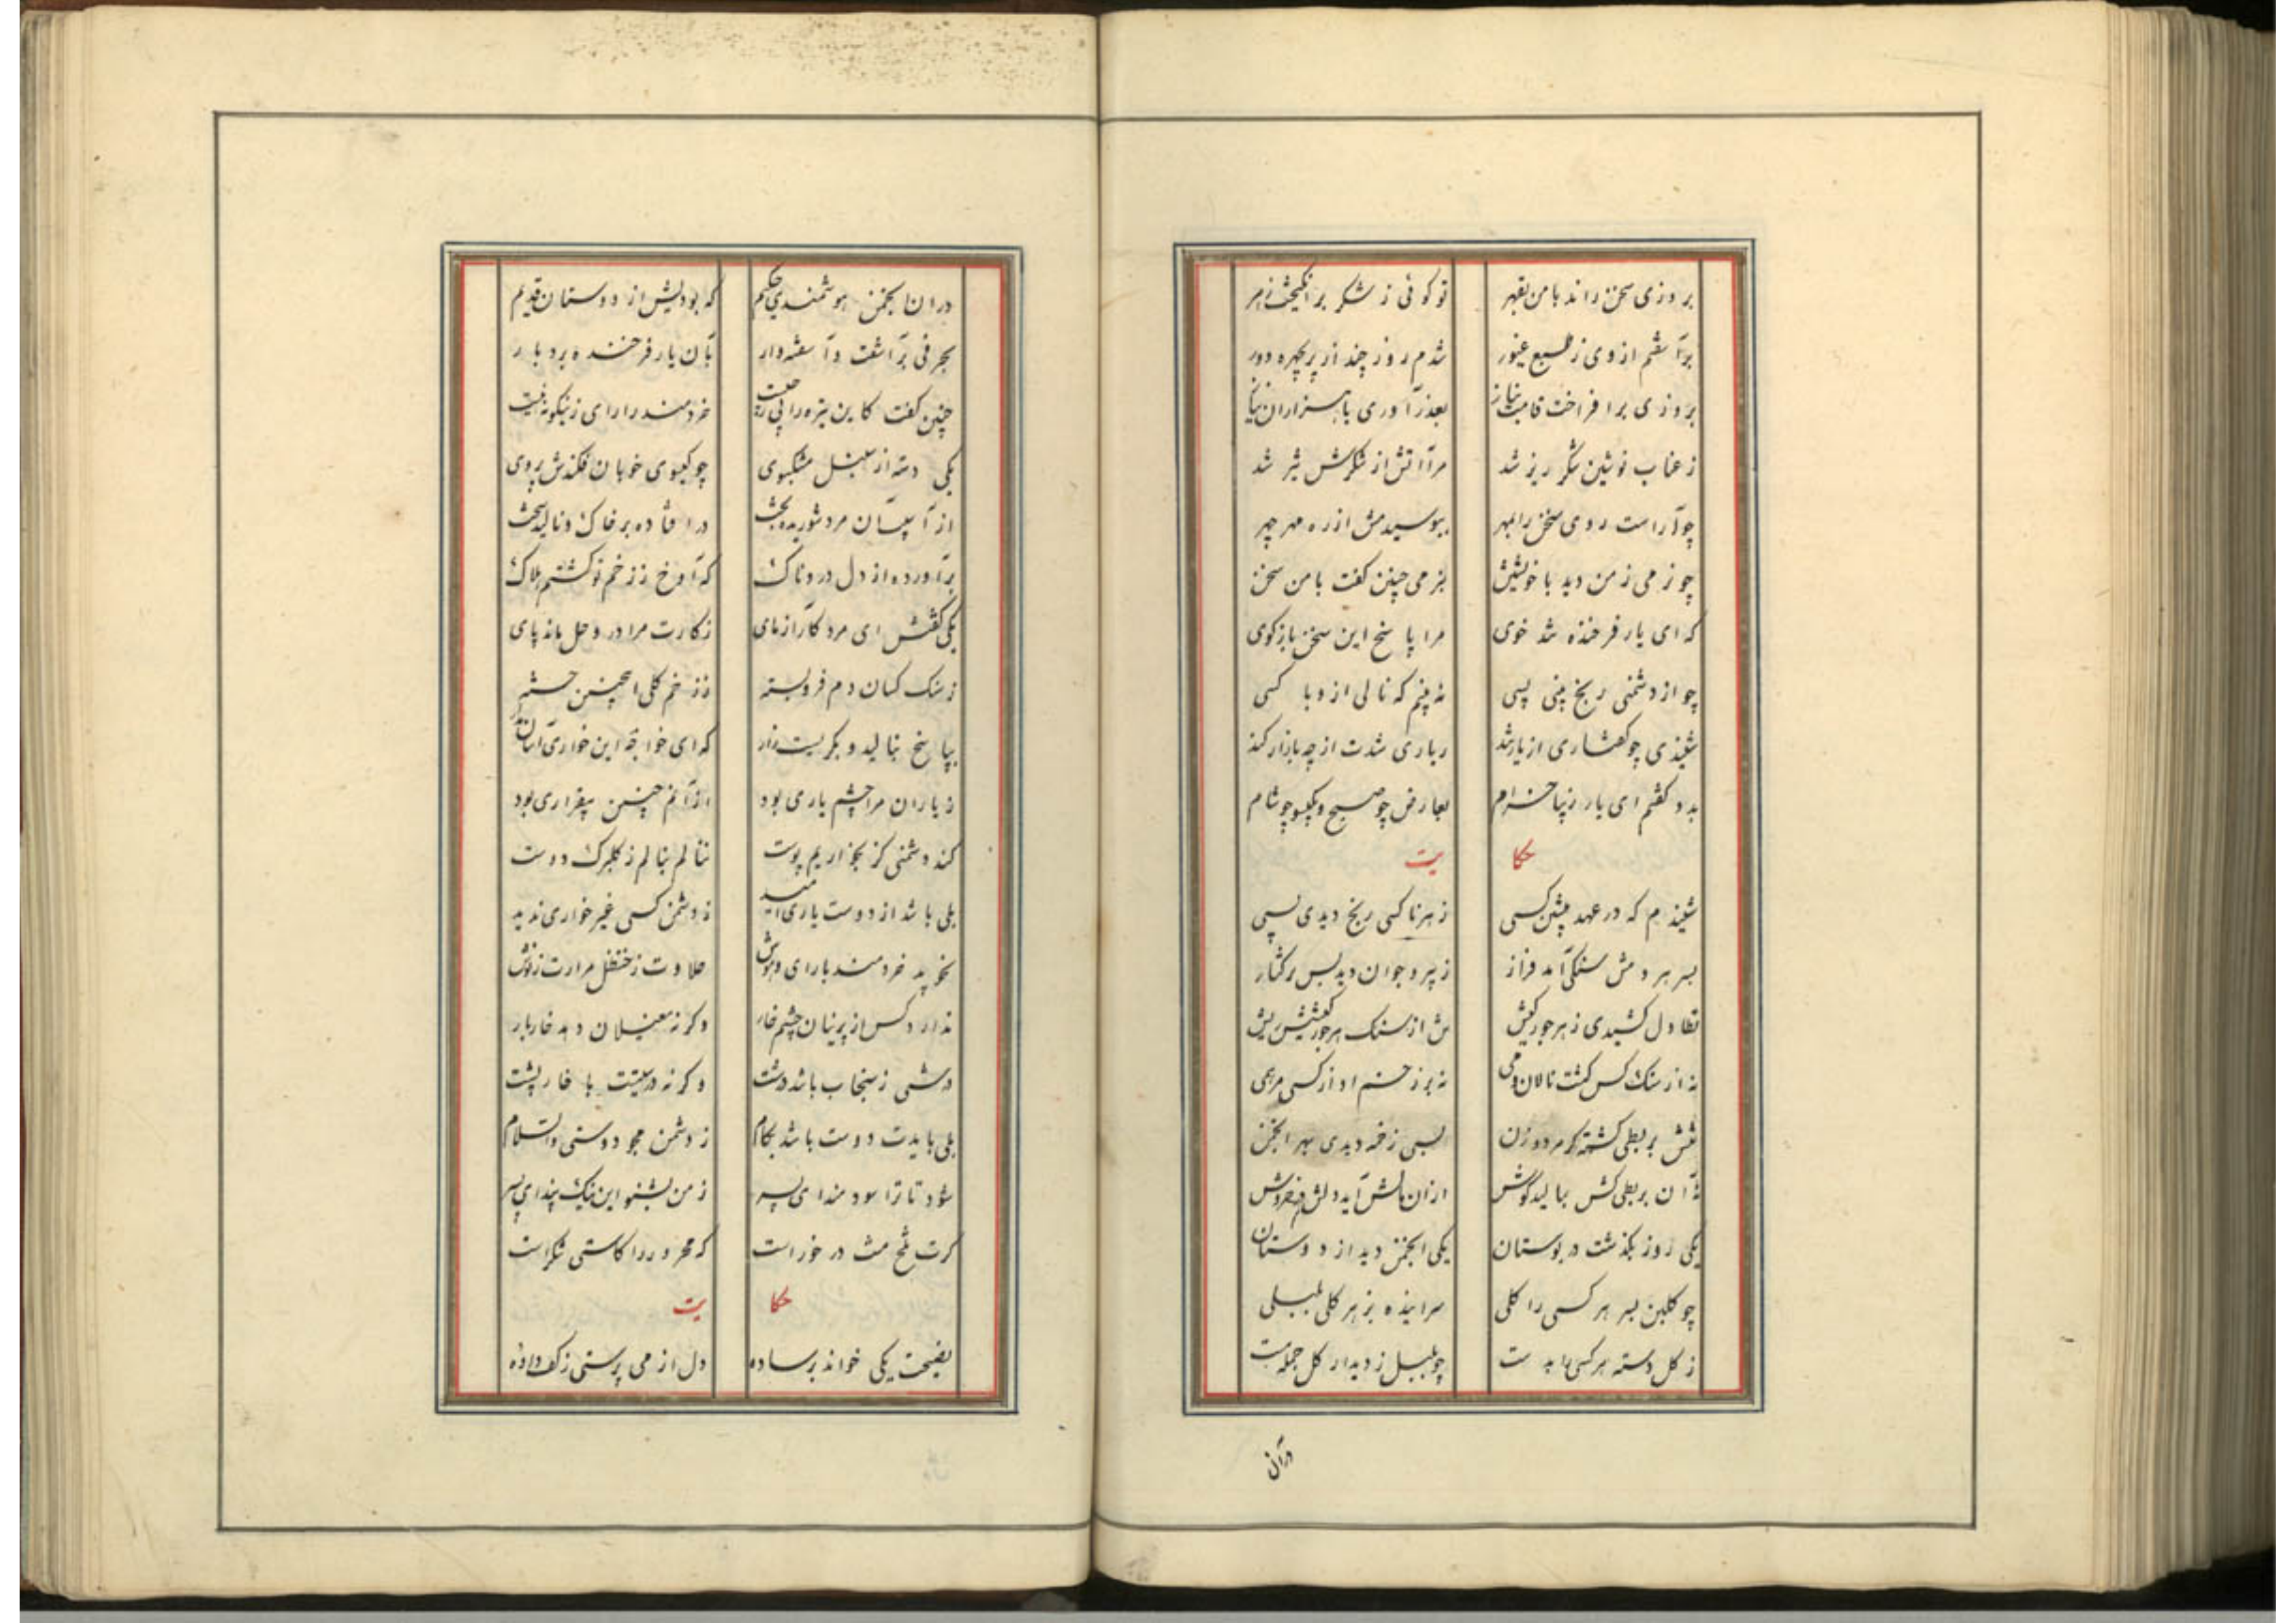 بروزی سخن راند با من بقهر توکوئی ز شکر برانکیخت زهر
برآشفتم از وی ز طبع غیور شدم روز چند از پریچهره دور
بروزی برافراخت قامت بناز بعذرآوری با هزاران نیاز
ز عناب نوشین شکر ریز شد مرا آتش از شکرش تیز شد
چو آراست روی سخن را بمهر ببوسیدمش از ره مهر چهر
چو نرمی ز من دید با خویشتن بنرمی چنین کفت با من سخن
که ای یار فرخنده شد خوی مرا پاسخ این سخن بازکوی
چو از دشمنی رنج بینی بسی نه بینم که نالی ازو با کسی
شنیدی چو کفتاری از یار تند ز یاری شدت از چه بازار کند
بدو کفتم ای یار زیبا خرام بعارض چو صبح و بکیسو چو شام
حکایت
شنیدم که در عهد پیشین کسی ز هر ناکسی رنج دیدی بسی
بسر بردمش سنکی آمد فراز ز پیر و جوان دید بس
تطاول کشیدی ز هر جورکیش تنش از سنک هر جورکیشیش ریش
نه از سنک کس کشت نالان دمی نه بر زخم او از کسی مرهمی
تنش بربطی کشته کز مرد و زن بسی زخمه دیدی بهر انجمن
نه آن بربطی کش بمالید کوش ازان مالش آید دلش در خروش
یکی روز بکذشت در بوستان یکی انجمن دید از دوستان
چو کلبن بسر هر کسی را کلی سراینده بر هر کلی بلبلی
ز کل دسته هر کسی را بدست چو بلبل ز دیدار کل جمله مست
درآن
دران انجمن هوشمندی حکیم که بودیش از دوستان قدیم
بحرفی برآشفت وآشفته‌وار بآن یار فرخنده بردبار
چنین کفت کاین تیره رائی ز چیست خردمند را رای زینکونه نیست
یکی دسته از سنبل مشکبوی چو کیسوی خوبان فکندش بروی
از آسیب آن مرد شوریده بخت درافتاده بر خاک و نالید سخت
برآورده از دل دردناک که آوخ ز زخم تو کشتم هلاک
یکی کفتش ای مرد کارآزمای ز کارت مرا در وحل ماند پای
ز سنک کسان دم فروبسته ز زخم کلی اینچنین خسته
بپاسخ بنالید و بکریست زار که ای خواجه این خواری آسان مدار
ز یاران مرا چشم یاری بود ازآنم چنین بیقراری بود
کند دشمنی کز بخواریم پوست ننالم بنالم ز کلبرک دوست
بلی باشد از دوست یاری امید ز دشمن کسی غیر خواری ندید
نخوید خردمند بارای وهوش حلاوت ز حنظل مرارت ز نوش
ندارد کس از پرنیان چشم خار وکرنه مغیلان دهد خار بار
درشتی ز سنجاب باشد درشت وکرنه درشتست با خارپشت
بلی بایدت دوست باشد بکام ز دشمن مجو دوستی والسلام
شود تا ترا سودمند ای پسر ز من بشنو این نیک پند ای پسر
کرت تلخ مت در خور است که محرور را کاستی شکر است
حکایت
نصیحت یکی خواند بر ساده دل از می پرستی ز کف داده